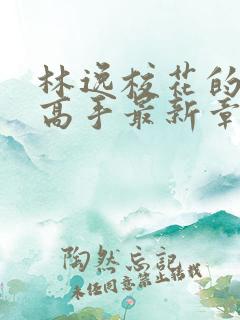 林逸校花的
高手最新章
陶然忘记
未经同意禁止转载